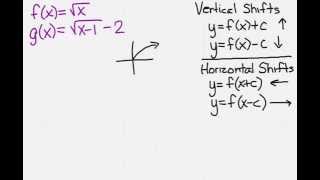 f(x)=√x
g(x)=√x-1 - 2
Vertical Shifts
y=f(x)+c ↑
y=f(x)-c ↓
Horizontal Shifts
y=f(x+c) ←
y=f(x-c) →